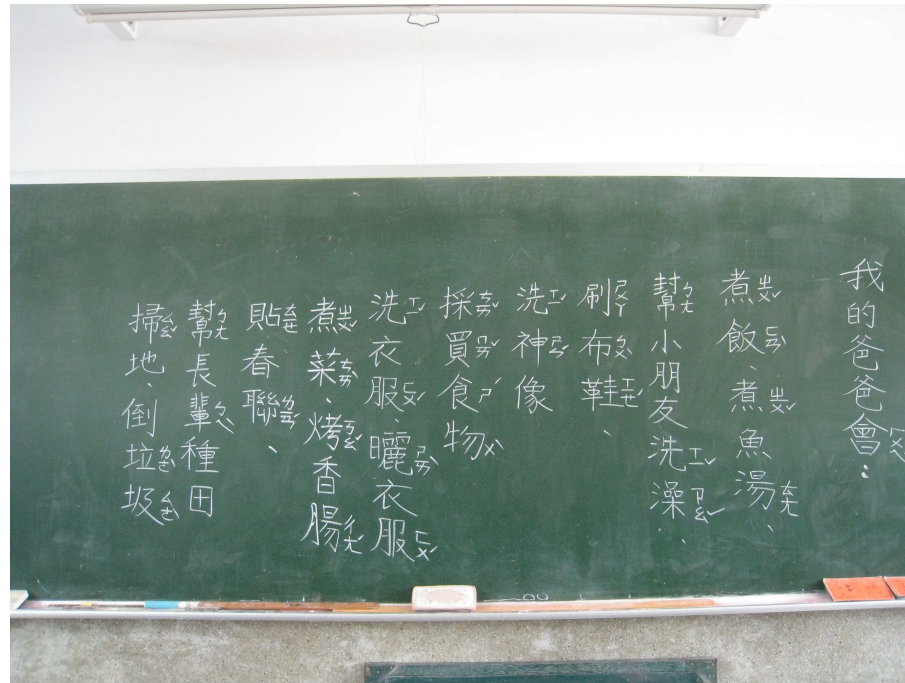 我的爸爸會：
煮飯、煮魚湯、
幫小朋友洗澡、
刷布鞋、
洗神像
採買食物
洗衣服、曬衣服
煮菜、烤香腸
貼春聯、
幫長輩種田
掃地、倒垃圾